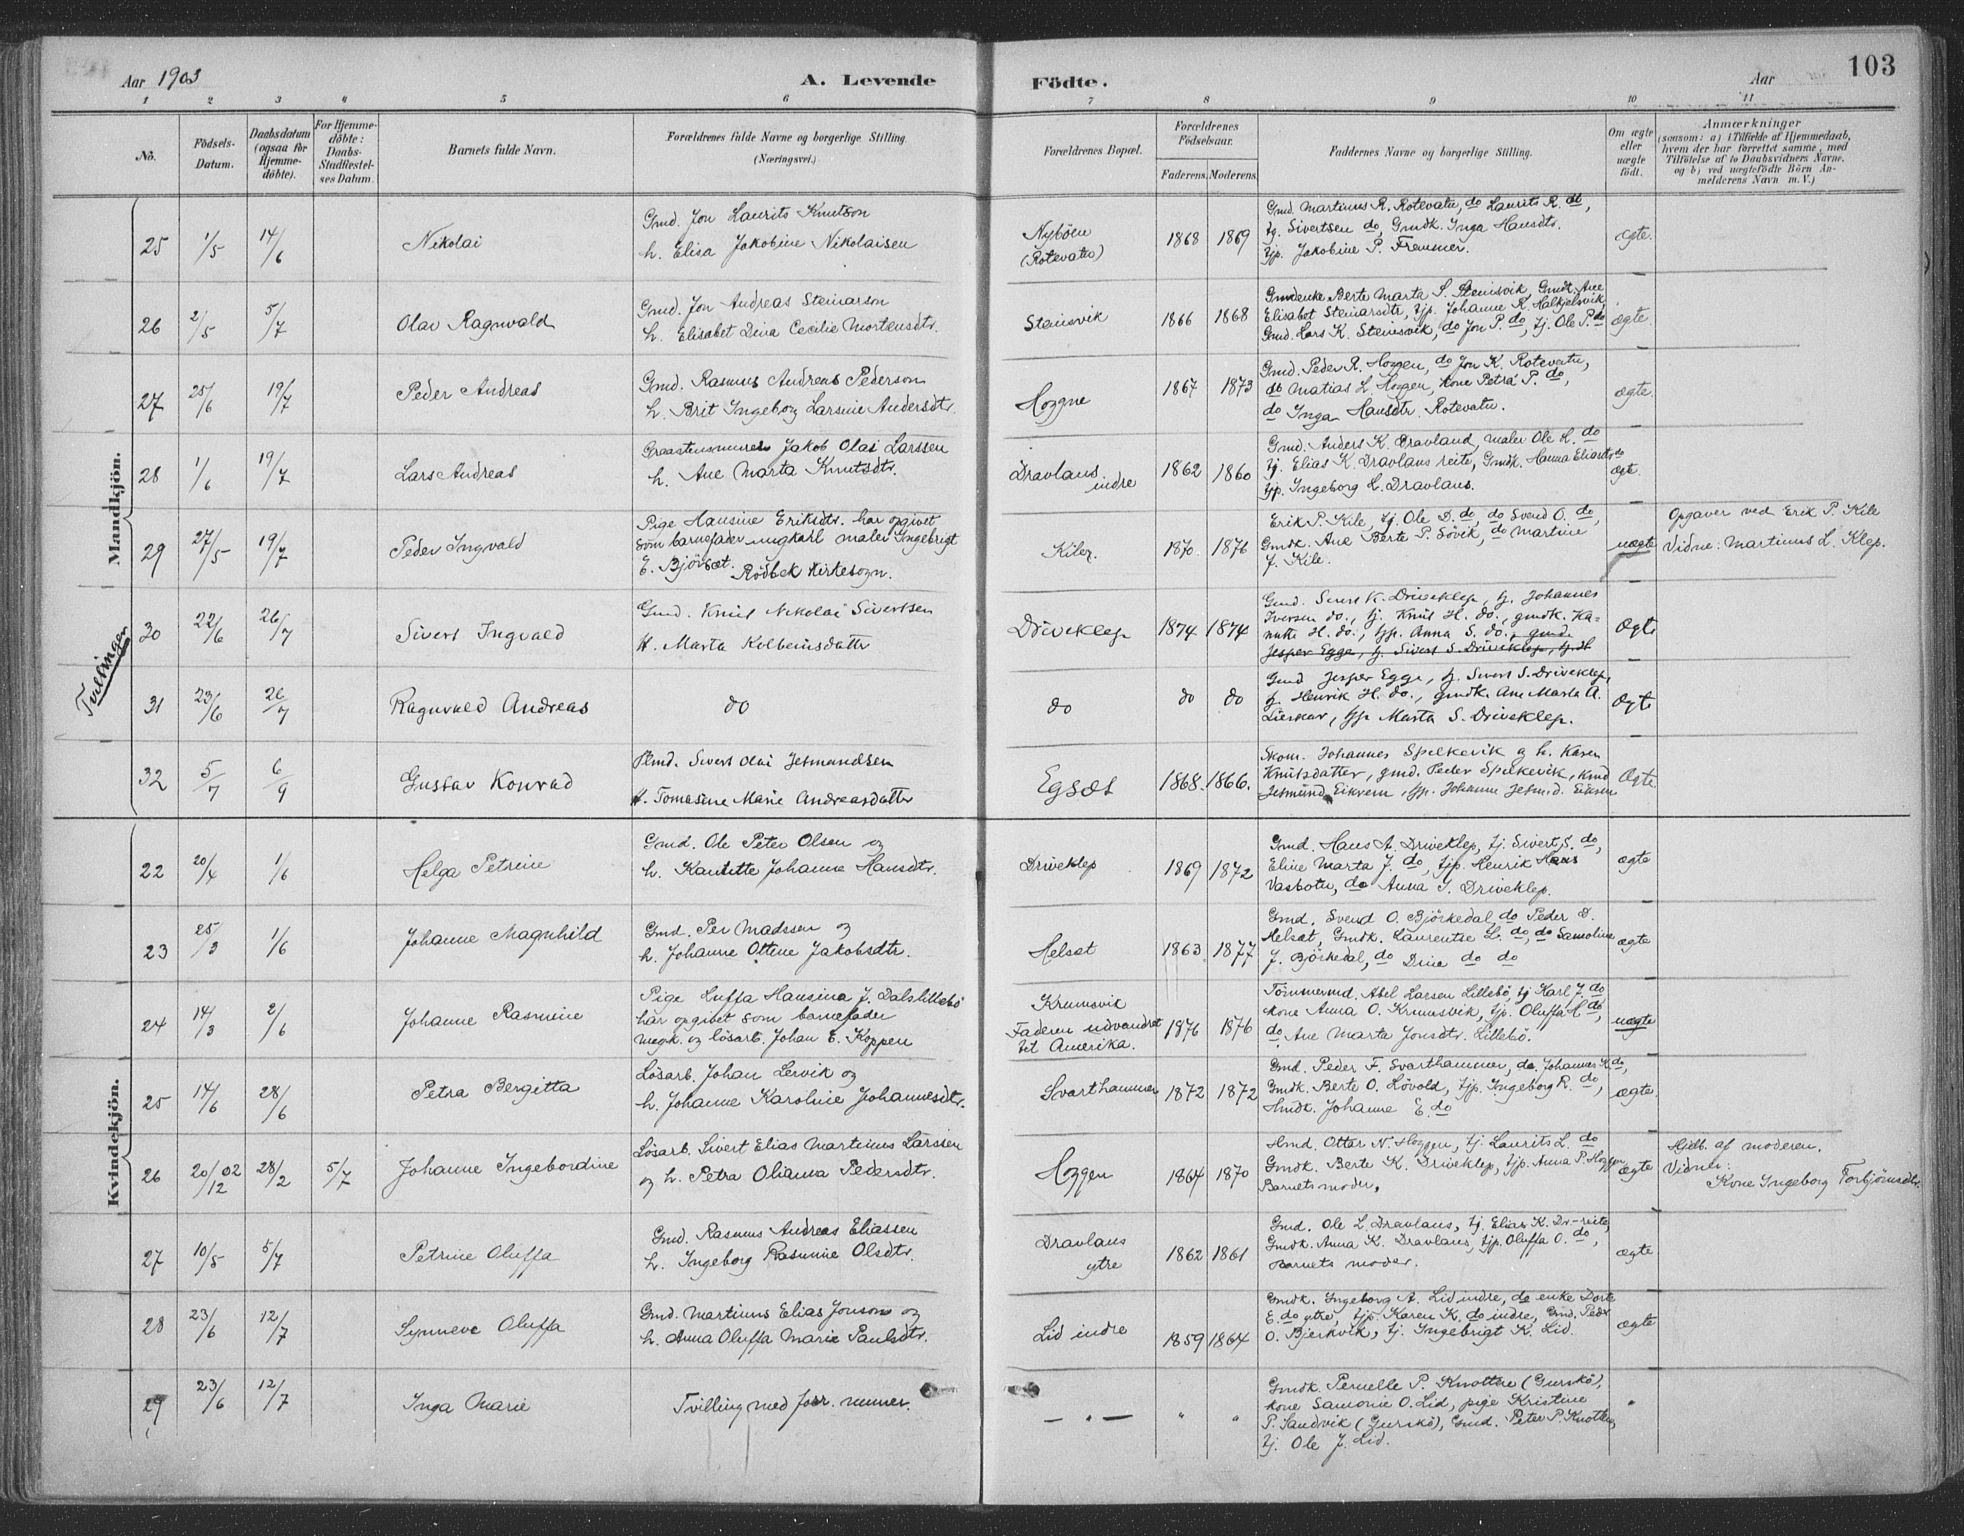 103
Aar 1903
A. Levende
Födte.
Aar
1 2 3 4 5 6 7 8 9 10 11
No.
Födsels-Datum.
Daabsdatum (ogsaa for Hjemme-döbte).
For Hjemme-döbte: Daabs-Stadfæstel-ses Datum.
Barnets fulde Navn.
Forældrenes fulde Navne og borgerlige Stilling
(Næringsvei.)
Forældrenes Bopæl.
Forældrenes Födselsaar.
Faderens. Moderens.
Faddernes Navne og borgerlige Stilling.
Om ægte eller uægte födt.
Anmærkninger
(saasom: a) i Tilfælde af Hjemmedaab,
hvem der har forrettet samme, med
Tilföielse af to Daabsvidners Navne.
og b) ved uægtefödte Börn An-
melderens Navn m. V.)
Mandkjön.
25 1/5 14/6 Nikolai
Gmd. Jon Laurits Knutson
h. Elisa Jakobine Nikolaisen
Nyböen
(Rotevatn)
1868 1869
Gmd. Martinus R. Rotevatn, do Laurits R. do,
tj. Sivertsen do, Gmdk. Inga Hansdtr.
tjp. Jakobine P. Fremmer.
ægte.
26 2/5 5/7 Olav Ragnvald
Gmd. Jon Andreas Steinarson
h. Elisabet Dina Cecilie Mortensdtr.
Steinsvik
1866 1868
Gmdenke Berte Marta S. Steinsvik, Gmdk. Ane
Elisabet Steinarsdtr, tjp. Johanne K. Halkjelsvik
Gmd. Lars K. Steinsvik, do Jon P. do, tj. Ole P. do
ægte.
27 25/6 19/7 Peder Andreas
Gmd. Rasmus Andreas Pederson
h. Brit Ingeborg Larsine Andersdtr.
Hoggne
1867 1873
Gmd. Peder R. Hoggen, do Jon K. Rotevatn,
do Matias L. Hoggen, kone Petra P. do,
do Inga Hansdtr. Rotevatn.
ægte.
28 1/6 19/7 Lars Andreas
Graastensmurer Jakob Olai Larssen
h. Ane Marta Knutsdtr.
Dravlaus
indre
1862 1860
Gmd. Anders K. Dravland, maler Ole K. do
tj. Elias K. Dravlaus reite, Gmdk. Hanna Eliasdtr do
tjp. Ingeborg L. Dravlaus.
ægt.
29 27/5 19/7 Peder Ingvald
Pige Hansine Eriksdtr. har opgivet
som barnefader ungkarl maler Ingebrigt
E. Björset. Rödbek Kirkesogn.
Kile
1870. 1876
Erik P. Kile, tj. Ole D. do, do Svend O. do,
Gmdk. Ane Berte P. Sövik, do Martine
J. Kile.
uægte
Opgaver ved Erik P. Kile
Vidne: Martinus L. Klep.
Tvillinger
30 22/6 26/7 Sivert Ingvald
Gmd. Knut Nikolai Sivertsen
H. Marta Kolbeinsdatter
Driveklep
1874 1874
Gmd. Sivert K. Driveklep, tj. Johannes
Iversen do., tj. Knut H. do., gmdk. Ka-
nutte H. do., tjp. Anna S. do., gmd.
Jesper Egge, tj. Sivert S. Driveklep, tj. H
Ægte
31 23/6 26/7 Ragnvald Andreas
do
do
do do
Gmd Jesper Egge, tj. Sivert S. Driveklep,
tj. Henrik H. do., gmdk. Ane Marta A.
Lieskar, tjp. Marta S. Driveklep.
Ægte
32 5/7 6/9 Gustav Konrad
Plmd. Sivert Olai Jetmundsen
H. Tomasine Marie Andreasdatter
Egsæt
1868. 1866.
Skom. Johannes Spilkevik og h. Karen
Knutsdatter, gmd. Peder Spilkevik, Knud
Jetmund Eikrem, tjp. Johanne Jetm.d. Eikrem
Ægte
Kvindekjön.
22 20/4 1/6 Helga Petrine
Gmd. Ole Peter Olsen og
h. Kanutte Johanne Hansdtr.
Driveklep
1869 1872
Gmd. Hans A. Driveklep, tj. Sivert S. do,
Eline Marta J. do, tjp. Henrik Hans
Vasbotn, do Anna I. Driveklep.
ægte
23 25/3 1/6 Johanne Magnhild
Gmd. Per Madssen og
h. Johanne Ottine Jakobsdtr.
Helset
1863. 1877
Gmd. Svend O. Björkedal, do Peder D.
Helset, Gmdk. Laurentse L. do, do Samoline
J. Björkedal, do Dine do do
ægte
24 14/3 2/6 Johanne Rasmine
Pige Luffa Hansina J. Dalslillebö
har opgivet som barnefader
ungk. og lösarb. Johan E. Koppen
Krumsvik
Faderen udvandret
til Amerika.
1876 1876
Tömmermd. Abel Larsen Lillebö, tj Karl J. do
kone Anna O. Krumsvik, tjp. Oluffa H. do,
do. Ane Marta Jonsdtr. Lillebö.
uægte
25 14/6 28/6 Petra Bergitta
Lösarb. Johan Lervik og
h. Johanne Karoline Johannesdtr.
Svarthammer
1872 1872
Gmd. Peder F. Svarthammer, do. Johannes K. do,
Gmdk. Berte O. Lövold, tjp. Ingeborg R. do,
Hmdk. Johanne E. do
ægte.
26 20/12 02 28/2 5/7 Johanne Ingebordine
Lösarb. Sivert Elias Martinus Larssen
og h. Petra Olianna Pedersdtr.
Hoggen
1864 1870
Hmd. Otter N. Hoggen, tj. Laurits L. do
Gmdk. Berte K. Driveklep, tjp. Anna P. Hoggen
Barnets moder,
ægte
Hjdb. af moderen.
Vidner:
Kone Ingeborg Torbjörnsdtr.
27 10/5 5/7 Petrine Oluffa
Gmd. Rasmus Andreas Eliassen
h. Ingeborg Rasmine Olsdtr.
Dravlaus
ytre
1862 1861
Gmd. Ole L. Dravlaus, tj. Elias K. Dr-reite,
Gmdk. Anna K. Dravlaus, tjp. Oluffa O. do,
Barnets moder.
ægte
28 23/6 12/7 Synneve Oluffa
Gmd. Martinus Elias Jonson og
h. Anna Oluffa Marie Paulsdtr.
Lid indre
1859 1864
Gmdk. Ingeborg A. Lid indre, do enke Dorte
E. do ytre, tjp. Karen K. do indre, Gmd. Peder
O. Bjerkvik, tj. Ingebrigt K. Lid.
ægte
29 23/6 12/7 Inga Marie
Tvilling med forr. numer.
— " —
" "
Gmdk. Pernelle P. Knotten (Gurskö),
kone Samonie O. Lid, pige Kristine
P. Sandvik (Gurskö), Gmd. Peter P. Knotten,
tj. Ole J. Lid.
"